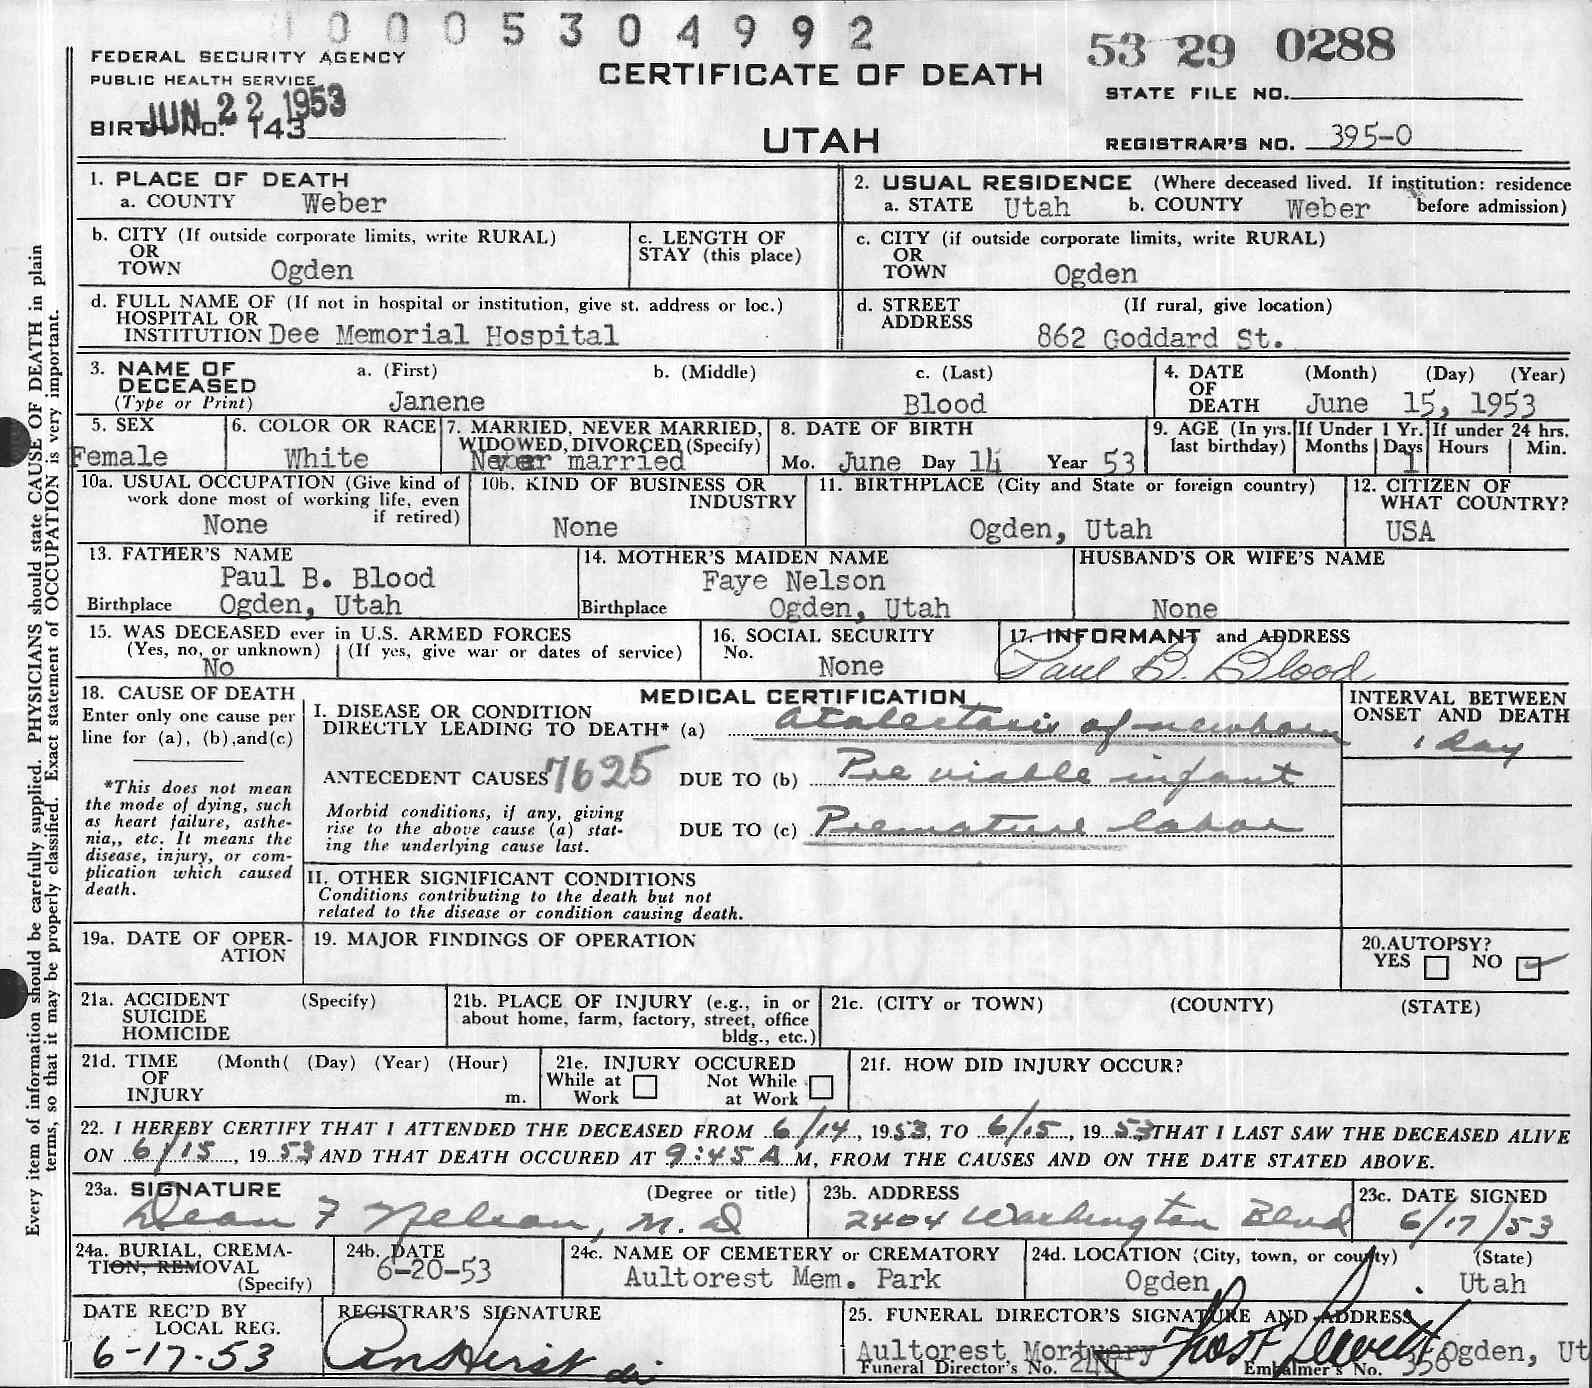 0005304992
FEDERAL SECURITY AGENCY
PUBLIC HEALTH SERVICE
JUN 22 1953
BIRTH NO. 143
CERTIFICATE OF DEATH
UTAH
53 29 0288
STATE FILE NO.
REGISTRAR'S NO. 395-0
Every item of information should be carefully supplied. PHYSICIANS should state CAUSE OF DEATH in plain
terms, so that it may be properly classified. Exact statement of OCCUPATION is very important.
1. PLACE OF DEATH
a. COUNTY Weber
2. USUAL RESIDENCE (Where deceased lived. If institution: residence
a. STATE Utah b. COUNTY Weber before admission)
b. CITY (If outside corporate limits, write RURAL)
OR
TOWN Ogden
c. LENGTH OF
STAY (this place)
c. CITY (if outside corporate limits, write RURAL)
OR
TOWN Ogden
d. FULL NAME OF (If not in hospital or institution, give st. address or loc.)
HOSPITAL OR
INSTITUTION Dee Memorial Hospital
d. STREET (If rural, give location)
ADDRESS
862 Goddard St.
3. NAME OF a. (First) b. (Middle) c. (Last)
DECEASED
(Type or Print) Janene Blood
4. DATE (Month) (Day) (Year)
OF
DEATH June 15, 1953
5. SEX
Female
6. COLOR OR RACE
White
7. MARRIED, NEVER MARRIED,
WIDOWED, DIVORCED (Specify)
Never married
8. DATE OF BIRTH
Mo. June Day 14 Year 53
9. AGE (In yrs. last birthday)
If Under 1 Yr.
Months Days
1
If under 24 hrs.
Hours Min.
10a. USUAL OCCUPATION (Give kind of
work done most of working life, even
if retired)
None
10b. KIND OF BUSINESS OR
INDUSTRY
None
11. BIRTHPLACE (City and State or foreign country)
Ogden, Utah
12. CITIZEN OF
WHAT COUNTRY?
USA
13. FATHER'S NAME
Paul B. Blood
Birthplace Ogden, Utah
14. MOTHER'S MAIDEN NAME
Faye Nelson
Birthplace Ogden, Utah
HUSBAND'S OR WIFE'S NAME
None
15. WAS DECEASED ever in U.S. ARMED FORCES
(Yes, no, or unknown) (If yes, give war or dates of service)
No
16. SOCIAL SECURITY
No.
None
17. INFORMANT and ADDRESS
Paul B. Blood
18. CAUSE OF DEATH
Enter only one cause per
line for (a), (b),and(c)
*This does not mean
the mode of dying, such
as heart failure, asthe-
nia,, etc. It means the
disease, injury, or com-
plication which caused
death.
MEDICAL CERTIFICATION
I. DISEASE OR CONDITION
DIRECTLY LEADING TO DEATH* (a) Atalectasis of newborn
ANTECEDENT CAUSES 7625 DUE TO (b) Pre viable infant
Morbid conditions, if any, giving
rise to the above cause (a) stat-
ing the underlying cause last.
DUE TO (c) Premature labor
INTERVAL BETWEEN
ONSET AND DEATH
1 day
II. OTHER SIGNIFICANT CONDITIONS
Conditions contributing to the death but not
related to the disease or condition causing death.
19a. DATE OF OPER-
ATION
19. MAJOR FINDINGS OF OPERATION
20.AUTOPSY?
YES NO
21a. ACCIDENT (Specify)
SUICIDE
HOMICIDE
21b. PLACE OF INJURY (e.g., in or
about home, farm, factory, street, office
bldg., etc.)
21c. (CITY or TOWN) (COUNTY) (STATE)
21d. TIME (Month( (Day) (Year) (Hour)
OF
INJURY m.
21e. INJURY OCCURED
While at Not While
Work at Work
21f. HOW DID INJURY OCCUR?
22. I HEREBY CERTIFY THAT I ATTENDED THE DECEASED FROM 6/14, 1953, TO 6/15, 1953 THAT I LAST SAW THE DECEASED ALIVE
ON 6/15, 1953 AND THAT DEATH OCCURED AT 9:45 A M, FROM THE CAUSES AND ON THE DATE STATED ABOVE.
23a. SIGNATURE (Degree or title)
Dean F Nelson, M.D
23b. ADDRESS
2404 Washington Blvd
23c. DATE SIGNED
6/17/53
24a. BURIAL, CREMA-
TION, REMOVAL
(Specify)
24b. DATE
6-20-53
24c. NAME OF CEMETERY or CREMATORY
Aultorest Mem. Park
24d. LOCATION (City, town, or county) (State)
Ogden Utah
DATE REC'D BY
LOCAL REG.
6-17-53
REGISTRAR'S SIGNATURE
25. FUNERAL DIRECTOR'S SIGNATURE AND ADDRESS
Aultorest Mortuary Ogden, Ut
Funeral Director's No. Embalmer's No. 356